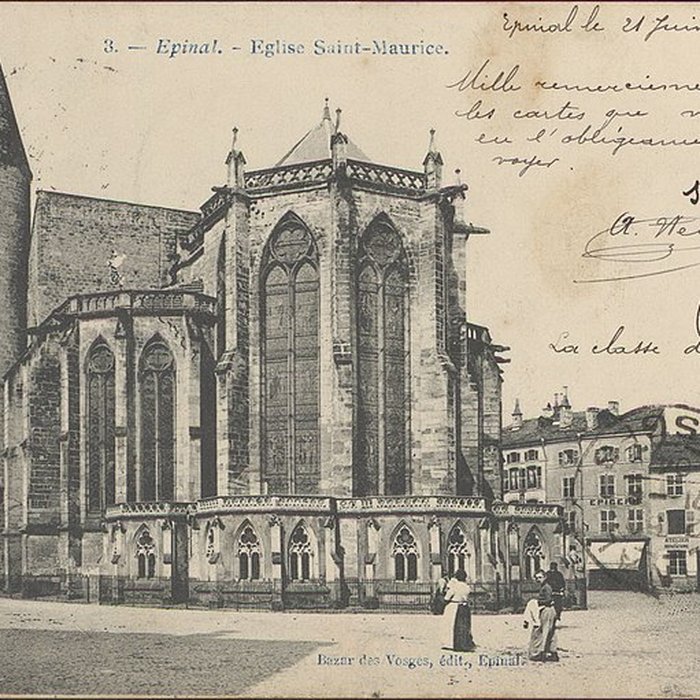 3. — Epinal. - Eglise Saint-Maurice.
Epinal le 21 Juin
Mille remerciemen
les cartes que
eu l'obligeam
voyer.
A. We
La classe d
EPICERIE
ATELIER
Bazar des Vosges, édit., Epinal.